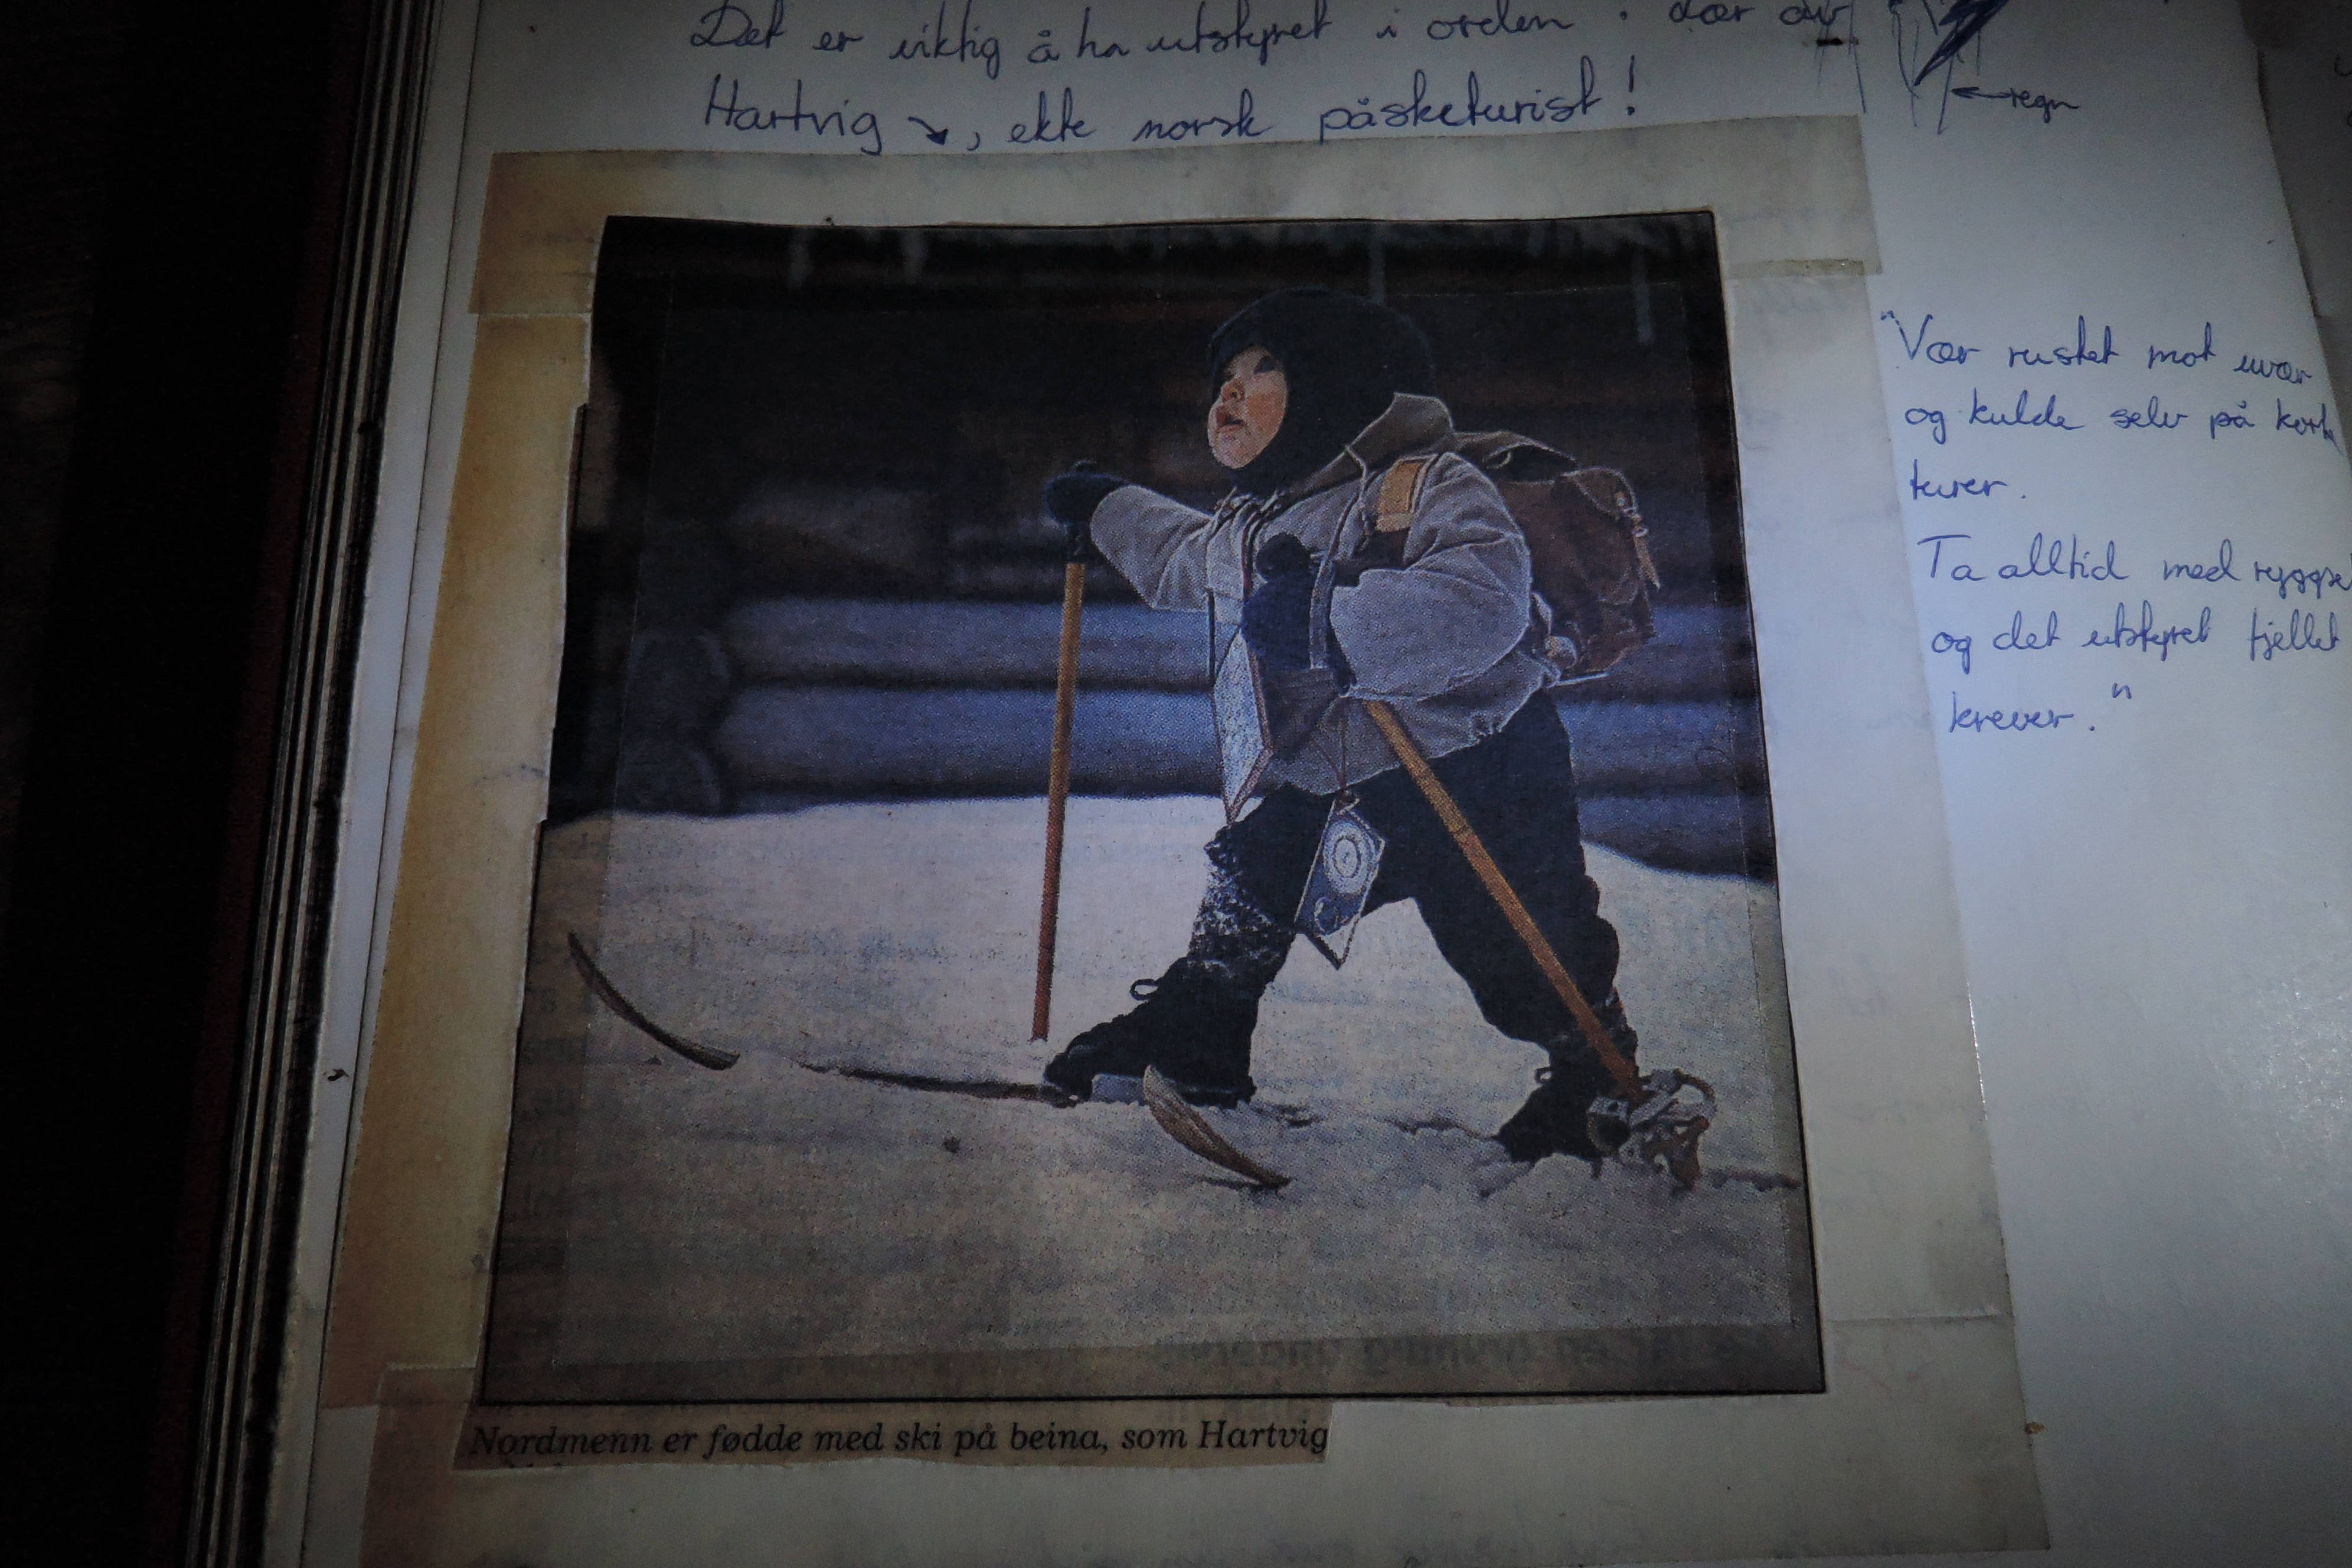 Det er viktig å ha utstyret i orden. Lær av
Hartvig, ekte norsk påsketurist!
regn
"Vær rustet mot uvær
og kulde selv på korte
turer.
Ta alltid med
og det utstyret fjellet
krever."
Nordmenn er fødde med ski på beina, som Hartvig